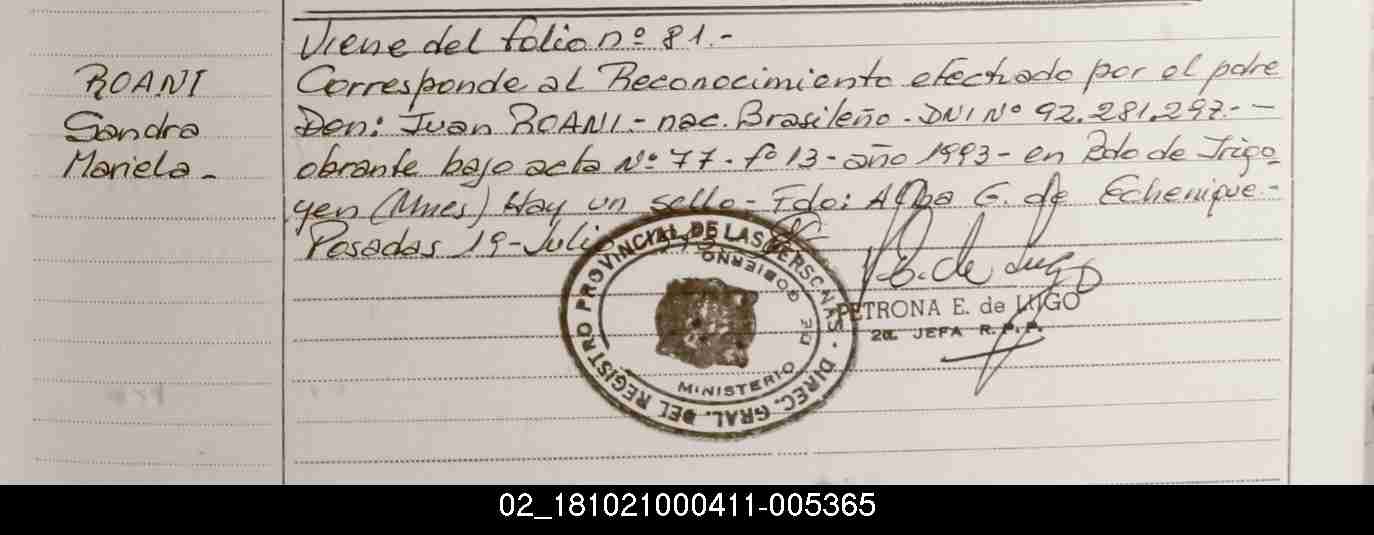 ROANI
Sandra
Mariela -
Viene del folio nº 81.-
Corresponde al Reconocimiento efectuado por el padre
Don: Juan ROANI.- nac. Brasileño. DNI Nº 92.281.297.-
obrante bajo acta Nº 77. fº 13 - año 1993 - en Pdo de Irigo
yen (Mnes) Hay un sello - Fdo: Alba G. de Echenique.-
Posadas 19 - Julio
REGISTRO PROVINCIAL DE LAS PERSONAS - DIREC. GRAL. DEL
MINISTERIO DE GOBIERNO
PETRONA E. de LUGO
2a. JEFA R.P.P.
02_181021000411-005365